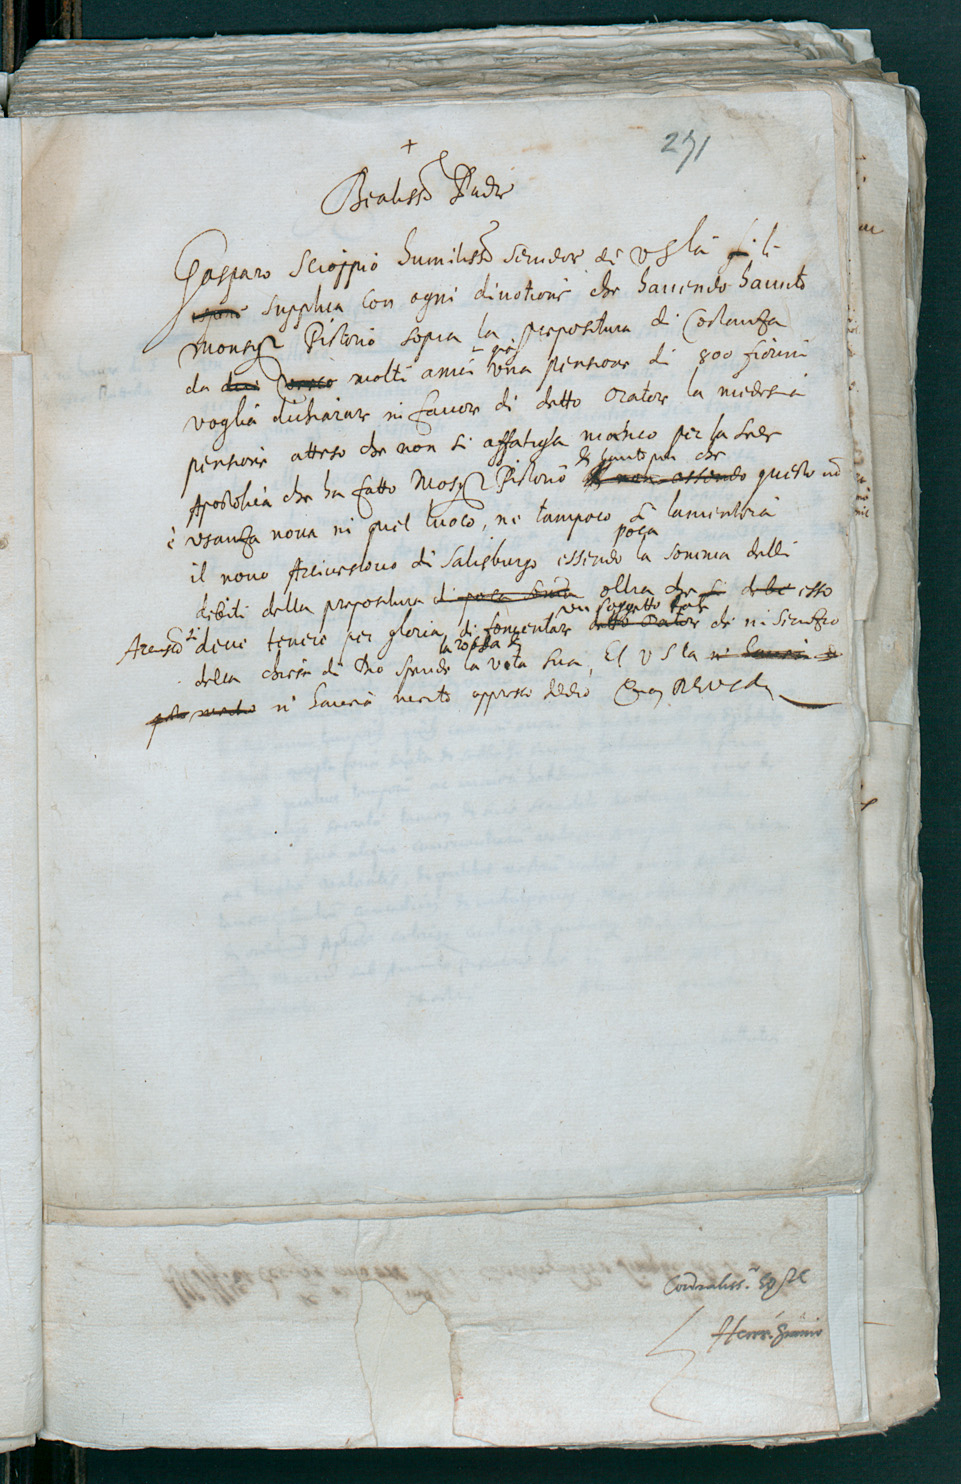 271
+
Beatiss.o Padre
Gasparo Scioppio humiliss.o servidor di V. S.tà gli
supplica con ogni divotione che havendo havuto
Mons.r Pistorio sopra la prepositura di Costanza
da molti anni in quà una pensione di 800 fiorini
voglia dichiarar in favor di detto orator la medesma
pensione atteso che non si affatiga manco per la Sede
Apostolica che ha fatto Mons.r Pistorio non essendo questo
è usanza nova in quel luoco, ne tampoco si lamenterà
il novo Arcivescovo di Salisburgo essendo poca la somma delli
debiti della prepositura di poca oltra che si debe esso
Arcives.o si deve tenere per gloria di sementar un soggetto tale detto Orator che in servitio
della chiesa di Dio spende la robba et la vita sua, Et V S.tà
n' haverà merito appresso Iddio
Cordialiss.o